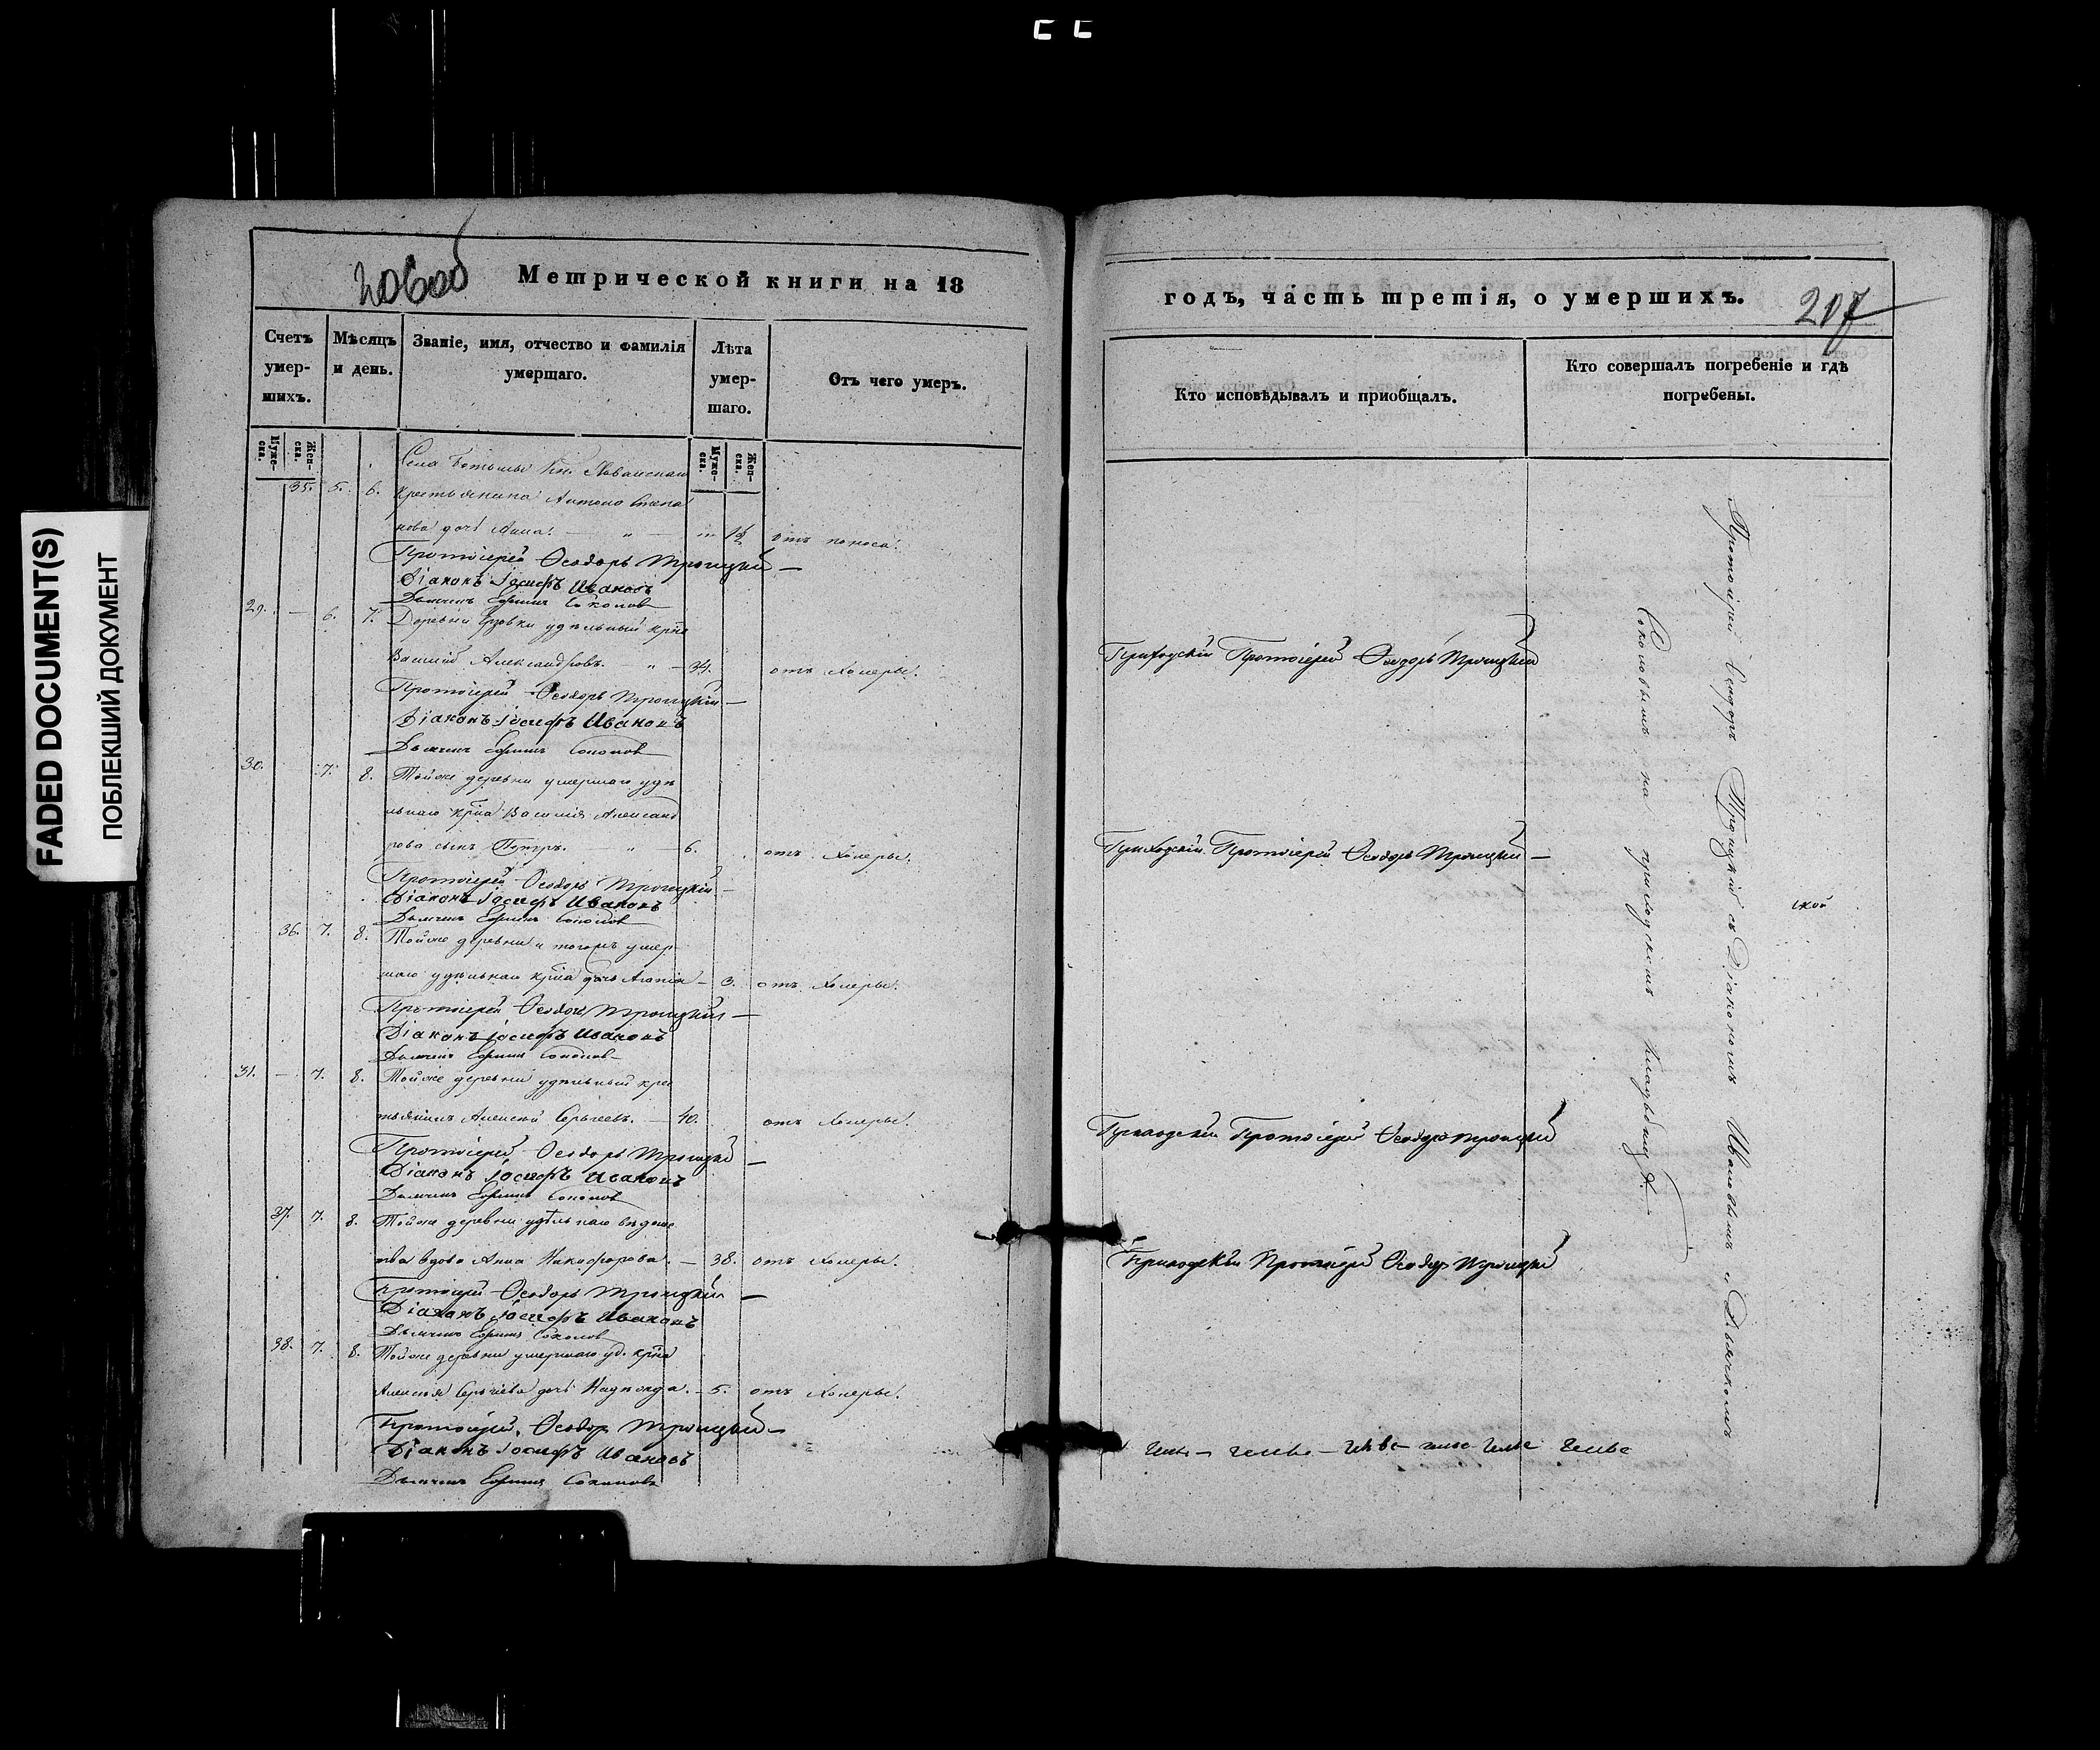 FADED DOCUMENT(S)
ПОБЛЕКШИЙ ДОКУМЕНТ
206об
Метрической книги на 18
Счетъ умер-шихъ.
Мѣсяцъ и день.
Званіе, имя, отчество и фамилія умершаго.
Лѣта умер-шаго.
Отъ чего умеръ.
Муже-ска.
Жен-ска.
Муже-ска.
Жен-ска.
Села
35. 5. 6. крестьянина Антона Степа
нова дочь Анна. отъ поноса.
Протоіерей Ѳеодоръ Троицкій
Діаконъ Іосифъ Ивановъ
Дьячекъ Ефимъ Соколов
29. — 6. 7. Деревни удѣльный крнъ
Василій Александровъ. " — 34. отъ холеры.
Протоіерей Ѳеодоръ Троицкій
Діаконъ Іосифъ Ивановъ
Дьячекъ Ефимъ Соколов
30. 7. 8. Тойже деревни умершаго удѣ
льнаго крна Василія Александ
рова сынъ Петръ. — " — 6. отъ холеры.
Протоіерей Ѳеодоръ Троицкій
Діаконъ Іосифъ Ивановъ
Дьячекъ Ефимъ Соколов
36. 7. 8. Тойже деревни и тогожъ умер
шаго удѣльнаго крна дочь — 3. отъ холеры.
Протоіерей Ѳеодоръ Троицкій
Діаконъ Іосифъ Ивановъ
Дьячекъ Ефимъ Соколов
31. — 7. 8. Тойже деревни удѣльный крес
тьянинъ Алексѣй Сергѣевъ. — 40. отъ холеры.
Протоіерей Ѳеодоръ Троицкій
Діаконъ Іосифъ Ивановъ
Дьячекъ Ефимъ Соколов
37. 7. 8. Тойже деревни удѣльнаго вѣдомс
тва вдова Анна Никифорова. — 38. отъ холеры.
Протоіерей Ѳеодоръ Троицкій
Діаконъ Іосифъ Ивановъ
Дьячекъ Ефимъ Соколов
38. 7. 8. Тойже деревни умершаго уд. крна
Алексѣя Сергѣева дочь Надежда. — 5. отъ холеры.
Протоіерей Ѳеодоръ Троицкій
Діаконъ Іосифъ Ивановъ
Дьячекъ Ефимъ Соколовъ
годъ, часть третія, о умершихъ.
207
Кто исповѣдывалъ и приобщалъ.
Кто совершалъ погребеніе и гдѣ погребены.
Приходскій Протоіерей Ѳеодоръ Троицкій
Приходскій Протоіерей Ѳеодоръ Троицкій
Приходскій Протоіерей Ѳеодоръ Троицкій
Приходскій Протоіерей Ѳеодоръ Троицкій
Протоіерей Ѳеодоръ Троицкій съ Діакономъ Ивановымъ и Дьячкомъ
Соколовымъ на приходскомъ кладбищѣ.